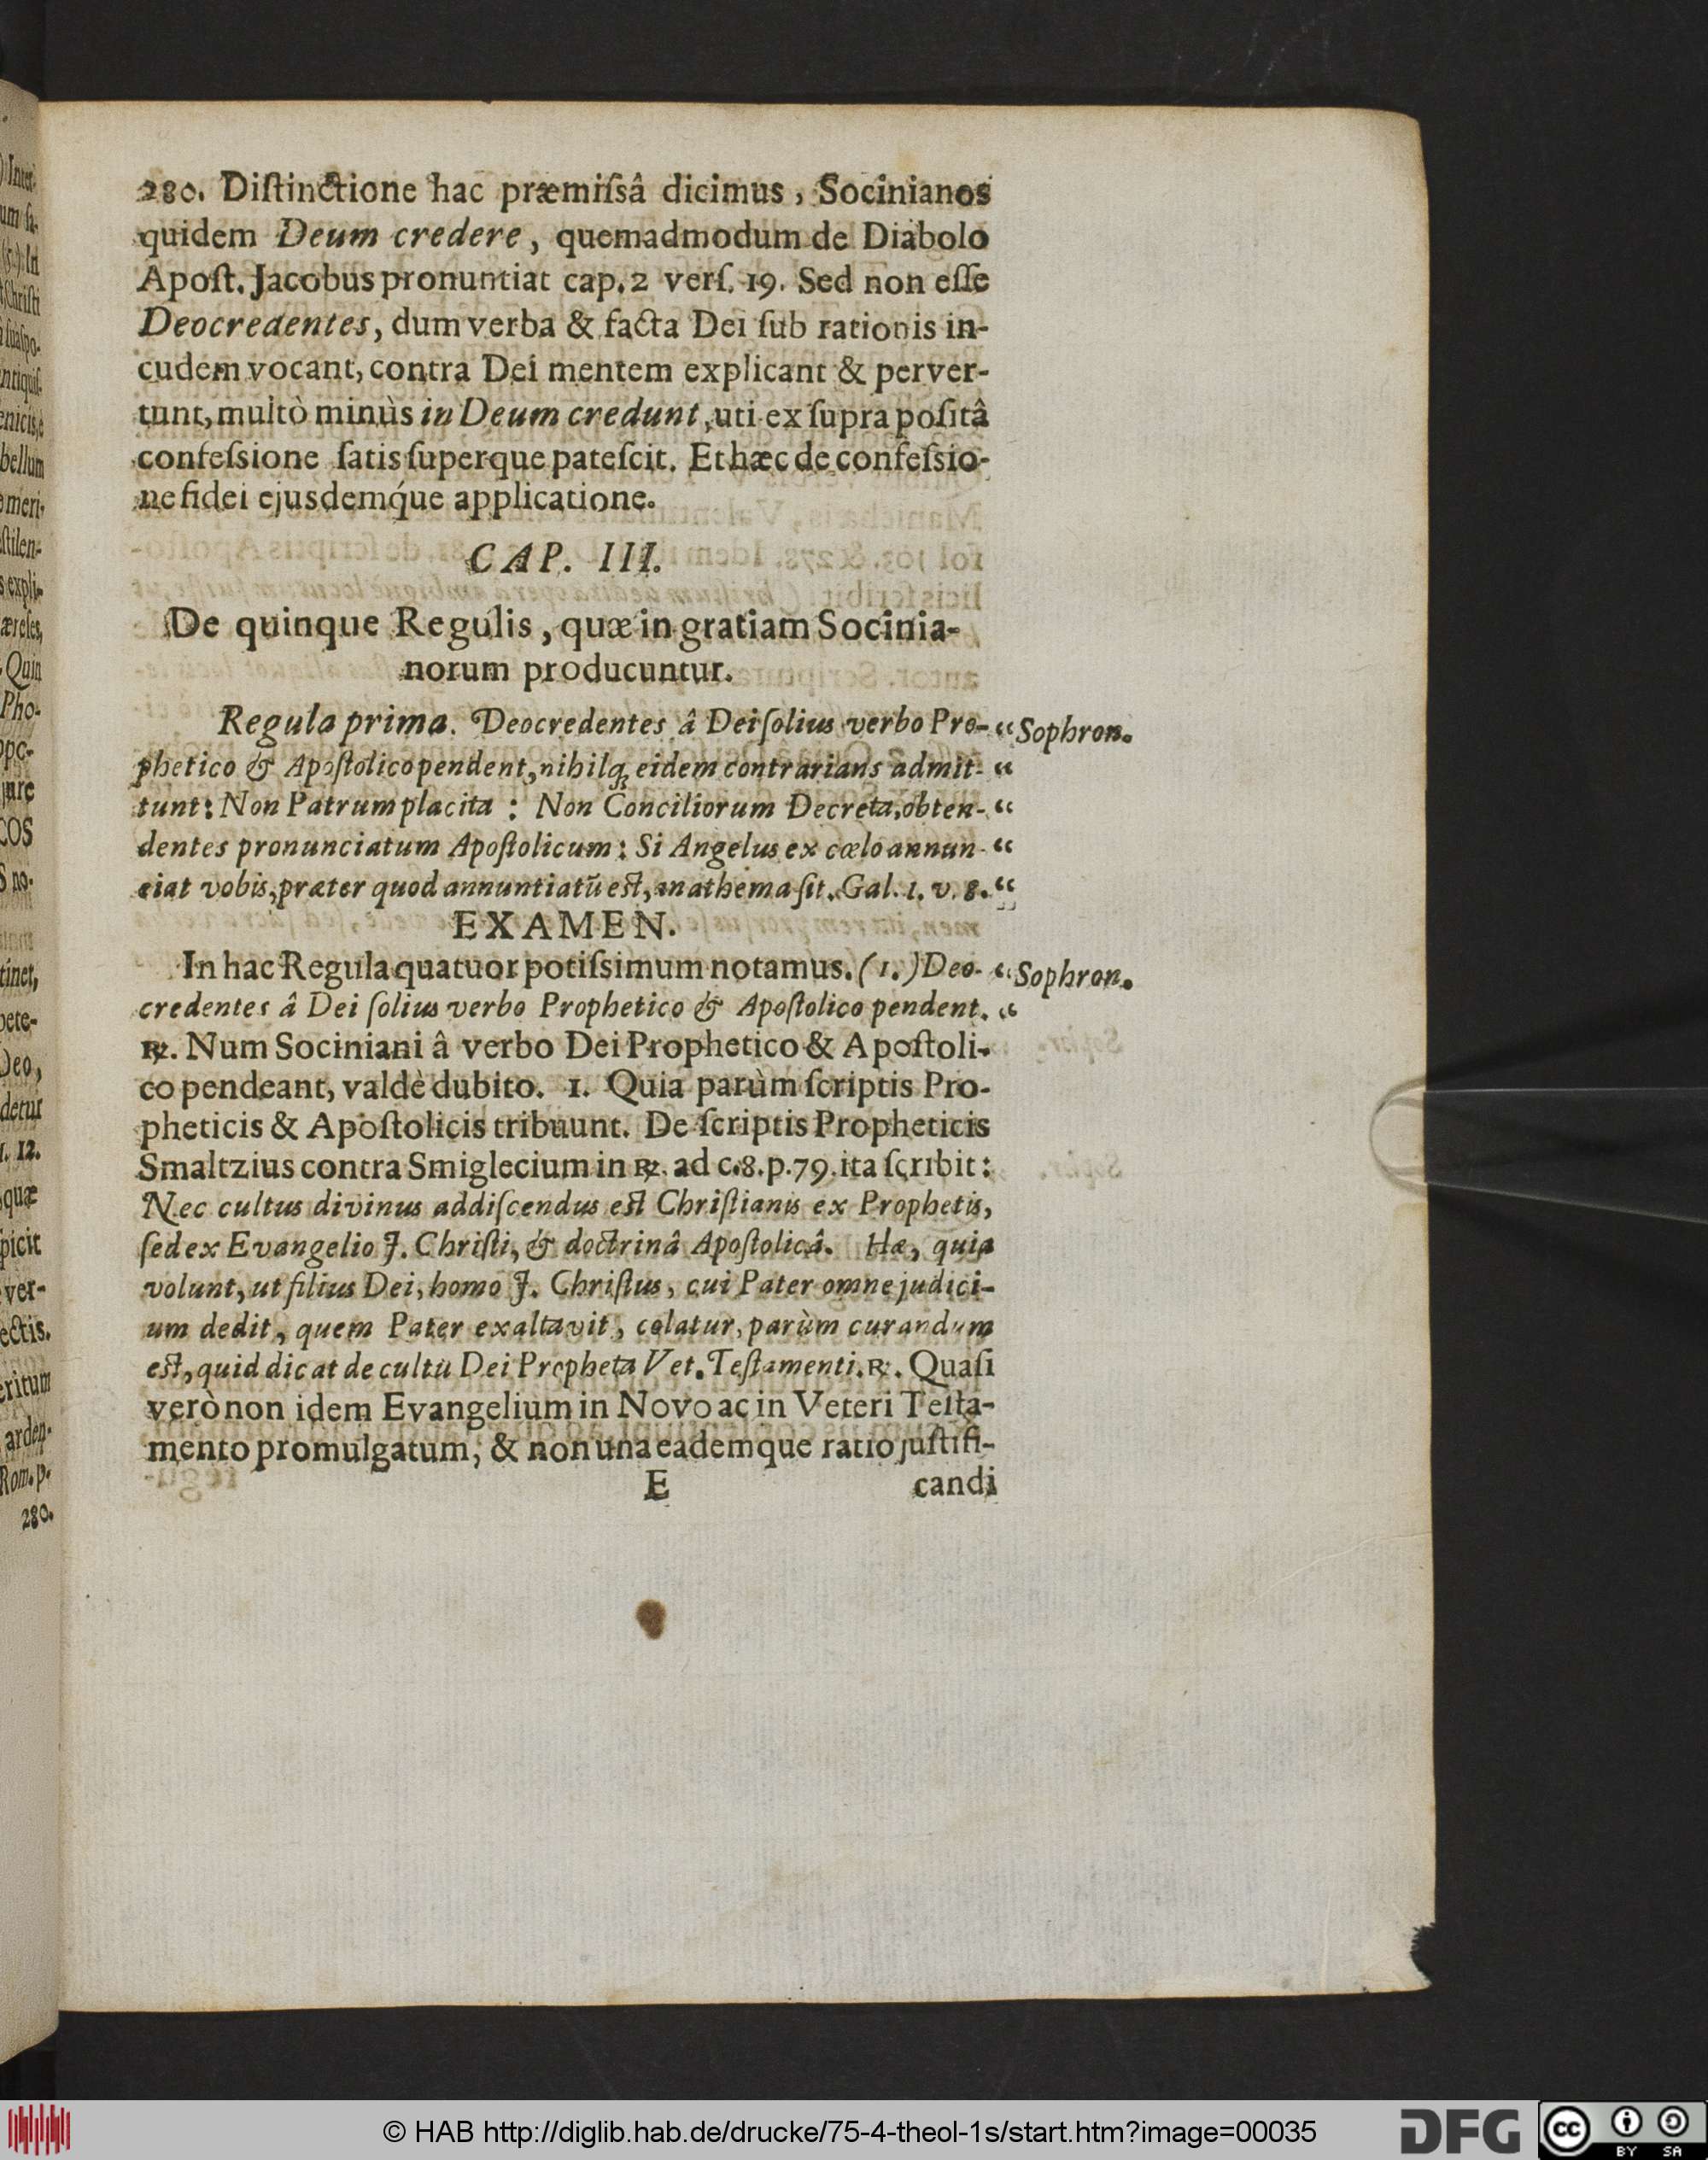 280. Diſtinctione hac præmiſsâ dicimus, Socinianos
quidem Deum credere, quemadmodum de Diabolo
Apoſt. Jacobus pronuntiat cap. 2 verſ. 19. Sed non eſſe
Deocredentes, dum verba & facta Dei ſub rationis in-
cudem vocant, contra Dei mentem explicant & perver-
tunt, multò minùs in Deum credunt, uti ex ſupra poſitâ
confeſsione ſatis ſuperque pateſcit. Et hæc de confeſsio-
ne fidei ejusdemq́ue applicatione.
CAP. III.
De quinque Regulis, quæ in gratiam Socinia-
norum producuntur.
Regula prima. Deocredentes â Dei ſolius verbo Pro- “ Sophron.
phetico & Apoſtolico pendent, nihilq; eidem contrarians admit- “
tunt: Non Patrum placita: Non Conciliorum Decreta, obten- “
dentes pronunciatum Apoſtolicum: Si Angelus ex cœlo annun- “
ciat vobis, præter quod annuntiatũ eſt, anathema ſit. Gal. 1. v. 8. “
EXAMEN.
In hac Regula quatuor potiſsimum notamus. (1.) Deo- “ Sophron.
credentes â Dei ſolius verbo Prophetico & Apoſtolico pendent. “
℞. Num Sociniani â verbo Dei Prophetico & Apoſtoli-
co pendeant, valdè dubito. 1. Quia parùm ſcriptis Pro-
pheticis & Apoſtolicis tribuunt. De ſcriptis Propheticis
Smaltzius contra Smiglecium in ℞. ad c. 8. p. 79. ita ſcribit:
Nec cultus divinus addiſcendus eſt Chriſtianis ex Prophetis,
ſed ex Evangelio J. Chriſti, & doctrinâ Apoſtolicâ. Hæ, quia
volunt, ut filius Dei, homo J. Chriſtus, cui Pater omne judici-
um dedit, quem Pater exaltavit, colatur, parùm curandum
eſt, quid dicat de cultu Dei Propheta Vet. Teſtamenti. ℞. Quaſi
verò non idem Evangelium in Novo ac in Veteri Teſta-
mento promulgatum, & non una eademque ratio juſtifi-
E candi
© HAB http://diglib.hab.de/drucke/75-4-theol-1s/start.htm?image=00035
DFG
cc BY SA